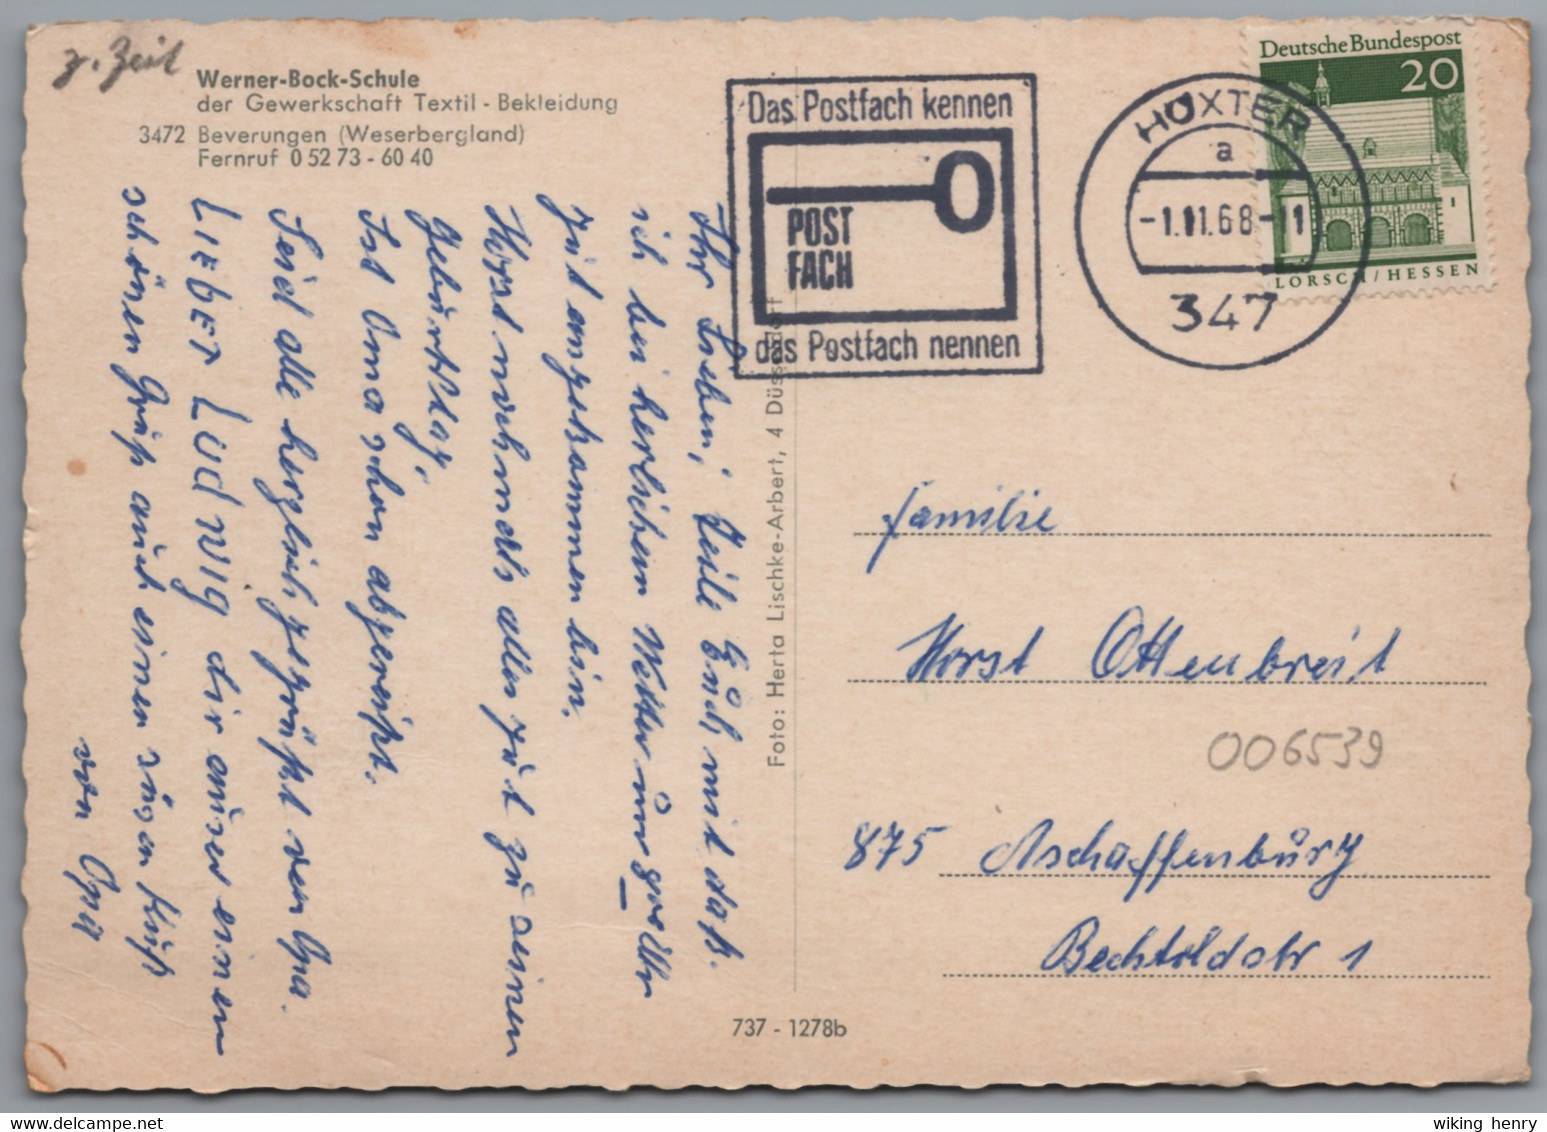 z. Zeit
Werner-Bock-Schule
der Gewerkschaft Textil - Bekleidung
3472 Beverungen (Weserbergland)
Fernruf 0 52 73 - 60 40
Das Postfach kennen
POST
FACH
das Postfach nennen
HÖXTER
a
-1.11.68-11
347
Deutsche Bundespost
20
LORSCH/HESSEN
Ihr Lieben, Teile Euch mit daß
ich bei herlichem Wetter um Uhr
gut angekommen bin.
Horst nochmals alles gut zu deinen
Geburtstag,
Ist Oma schon abgereist.
Seid alle herzlich gegrüßt von Opa.
LIEBER LUDWIG dir auser einem
schönen Gruß auch einen süsen Kuß
von Opa
Foto: Herta Lischke-Arbert, 4 Düsseldorf
737 - 1278b
Familie
Horst Ottenbreit
006539
875 Aschaffenburg
Bechtoldstr 1
wiking henry